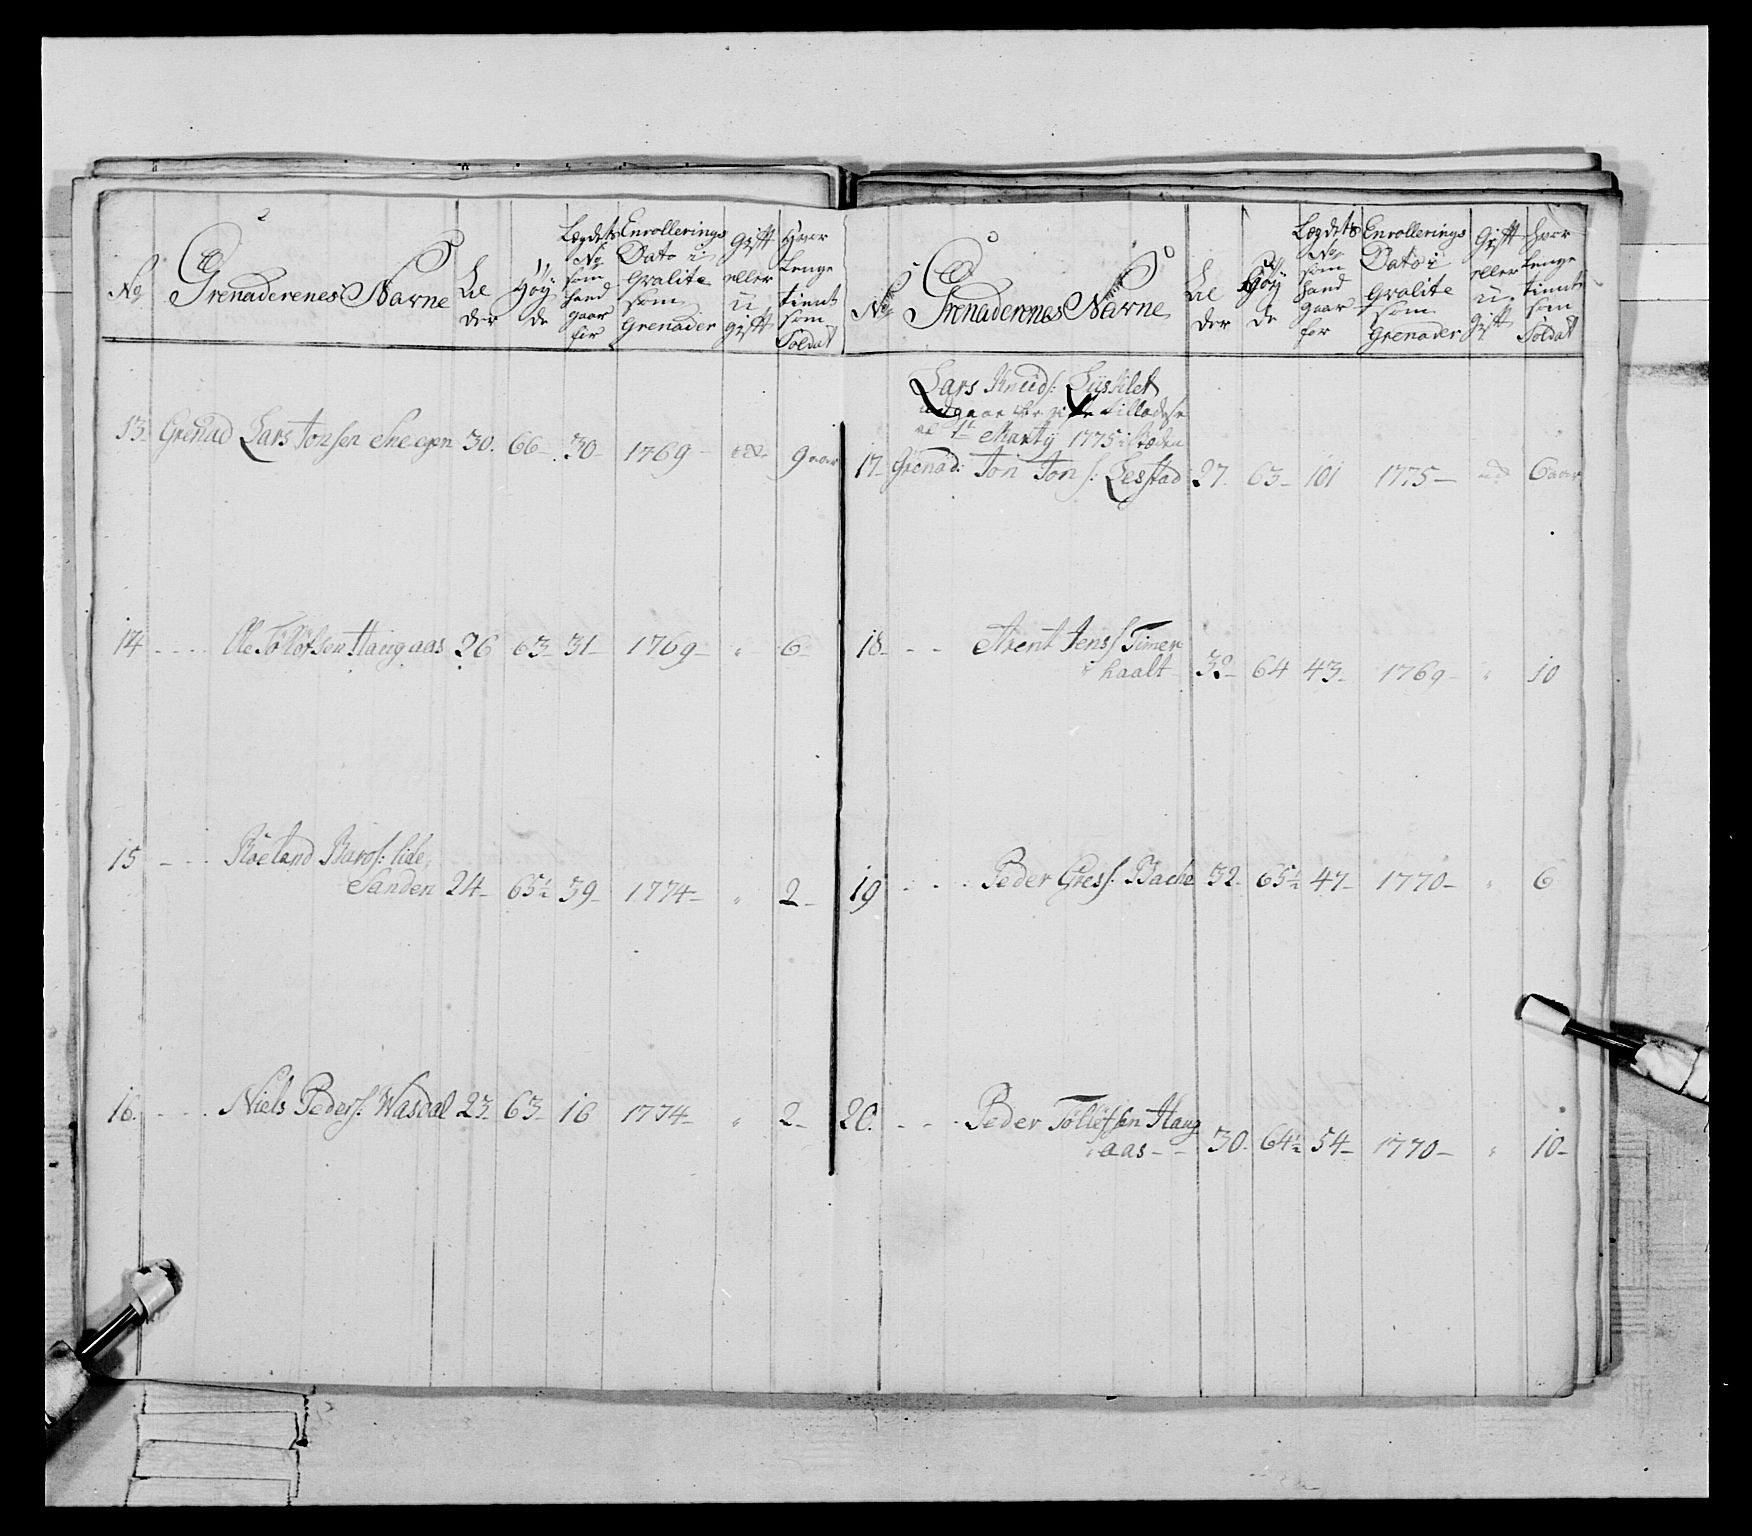 No Grenaderenes Navne Al der Høÿ de Lægdets No som hand gaar for Enrollerings Dato i Qvalite som Grenader Gift eller u gift Hvor Lenge tient som Soldat
13 Grenad Lars Jonsen 30. 66 30 1769 9 aar
14 Ole Tollofsen Haugaas 26 63 31 1769 " 6
15 Roeland Baros: lide
Sanden 24 65½ 39 1774 " 2
16. Niels Peders: Wasdal 23 63 16 1774 " 2
No Grenaderenes Navne Al der Høÿ de Lægdets No som hand gaar for Enrollerings Dato i Qvalite som Grenader Gift eller u gift hvor lenge tient som Soldat
Lars Knuds:
tilladelse
1t Martÿ 1775 i stæden
17 Grenad: Jon Jons: Lesstad 27 63 101 1775 6 aar
18 Arent Jens: Timer
haalt 30 64 43 1769 " 10
19 Peder Gres: Bache 32 65½ 47 1770 " 6
20. Peder Tollofsen Haug
aas 30 64½ 54 1770 " 10